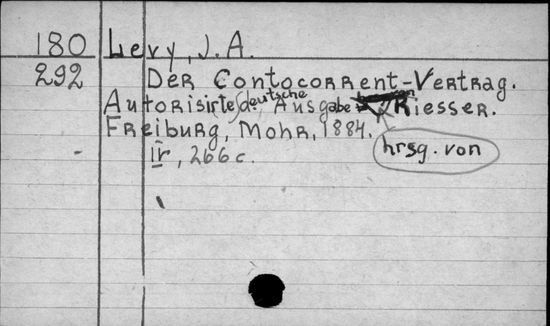 180 Levy, J. A.
292 Der Contocorrent-Vertrag.
Autorisirte deutsche Ausgabe hrsg. von Riesser.
Freiburg, Mohr, 1884.
266 c.